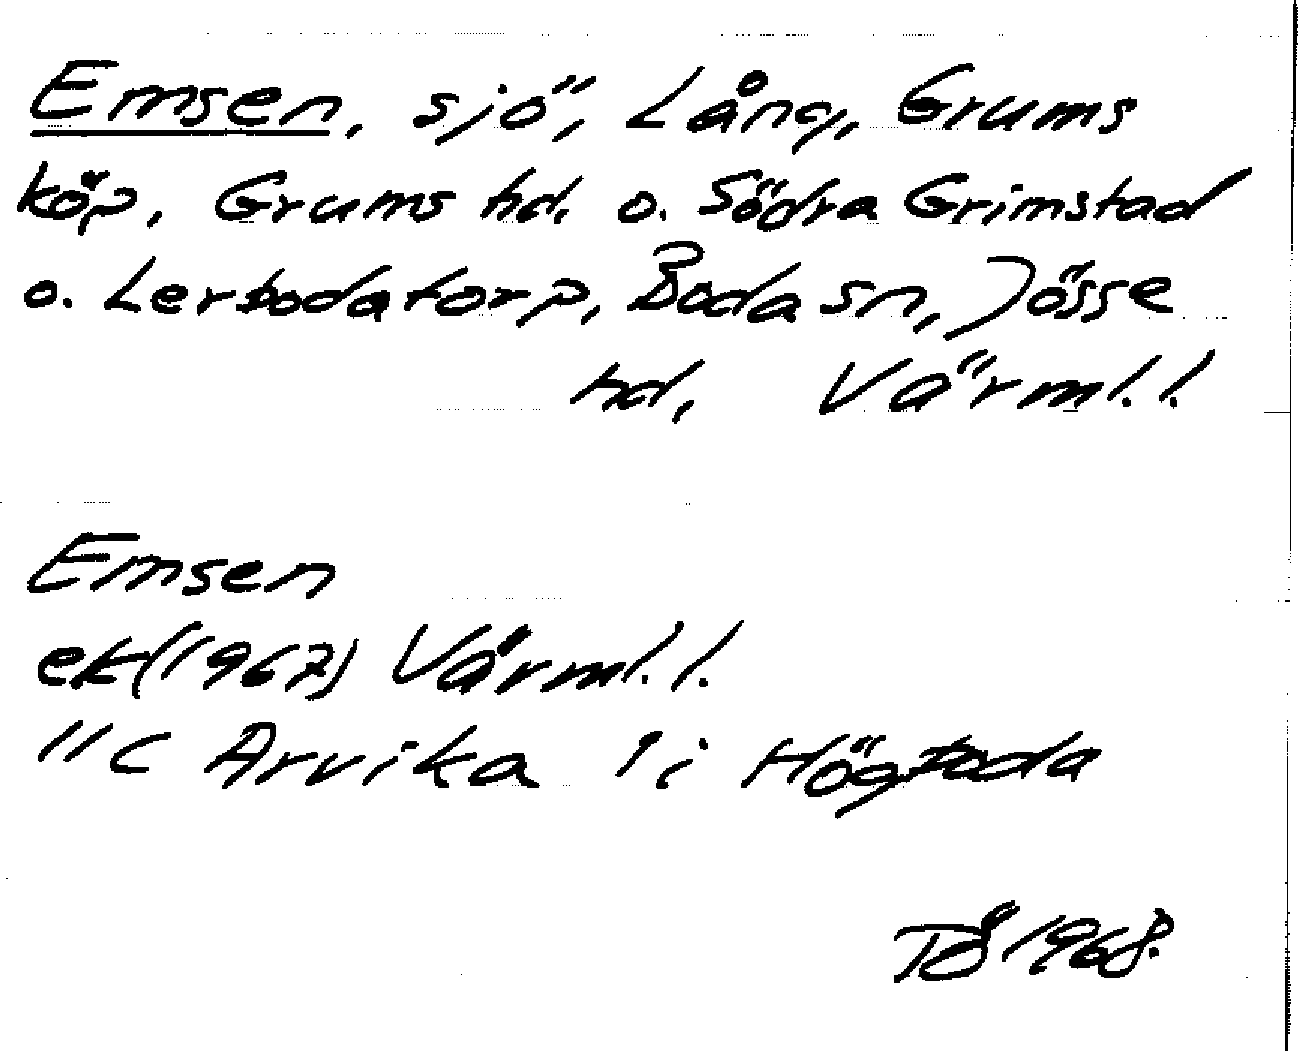 Emsen, sjö, Lång, Grums
köp, Grums hd. o. Södra Grimstad
o. Lerbodatorp, Boda sn, Jösse
hd, Värml. l.
Emsen
ek (1967) Värml. l.
11 C Arvika 1 i Högboda
TÅ 1968.